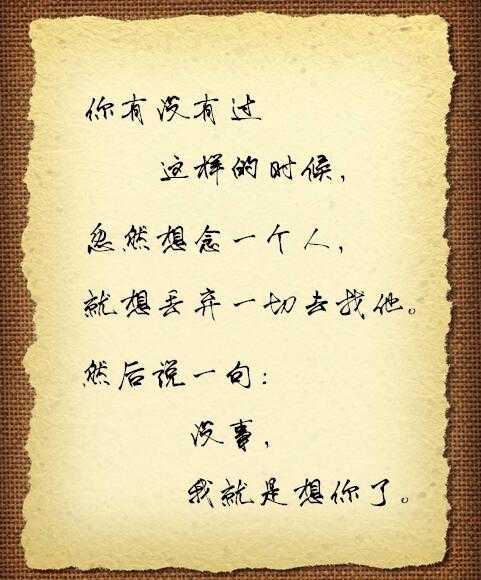 你有没有过
这样的时候，
忽然想念一个人，
就想丢弃一切去找他。
然后说一句：
没事，
我就是想你了。